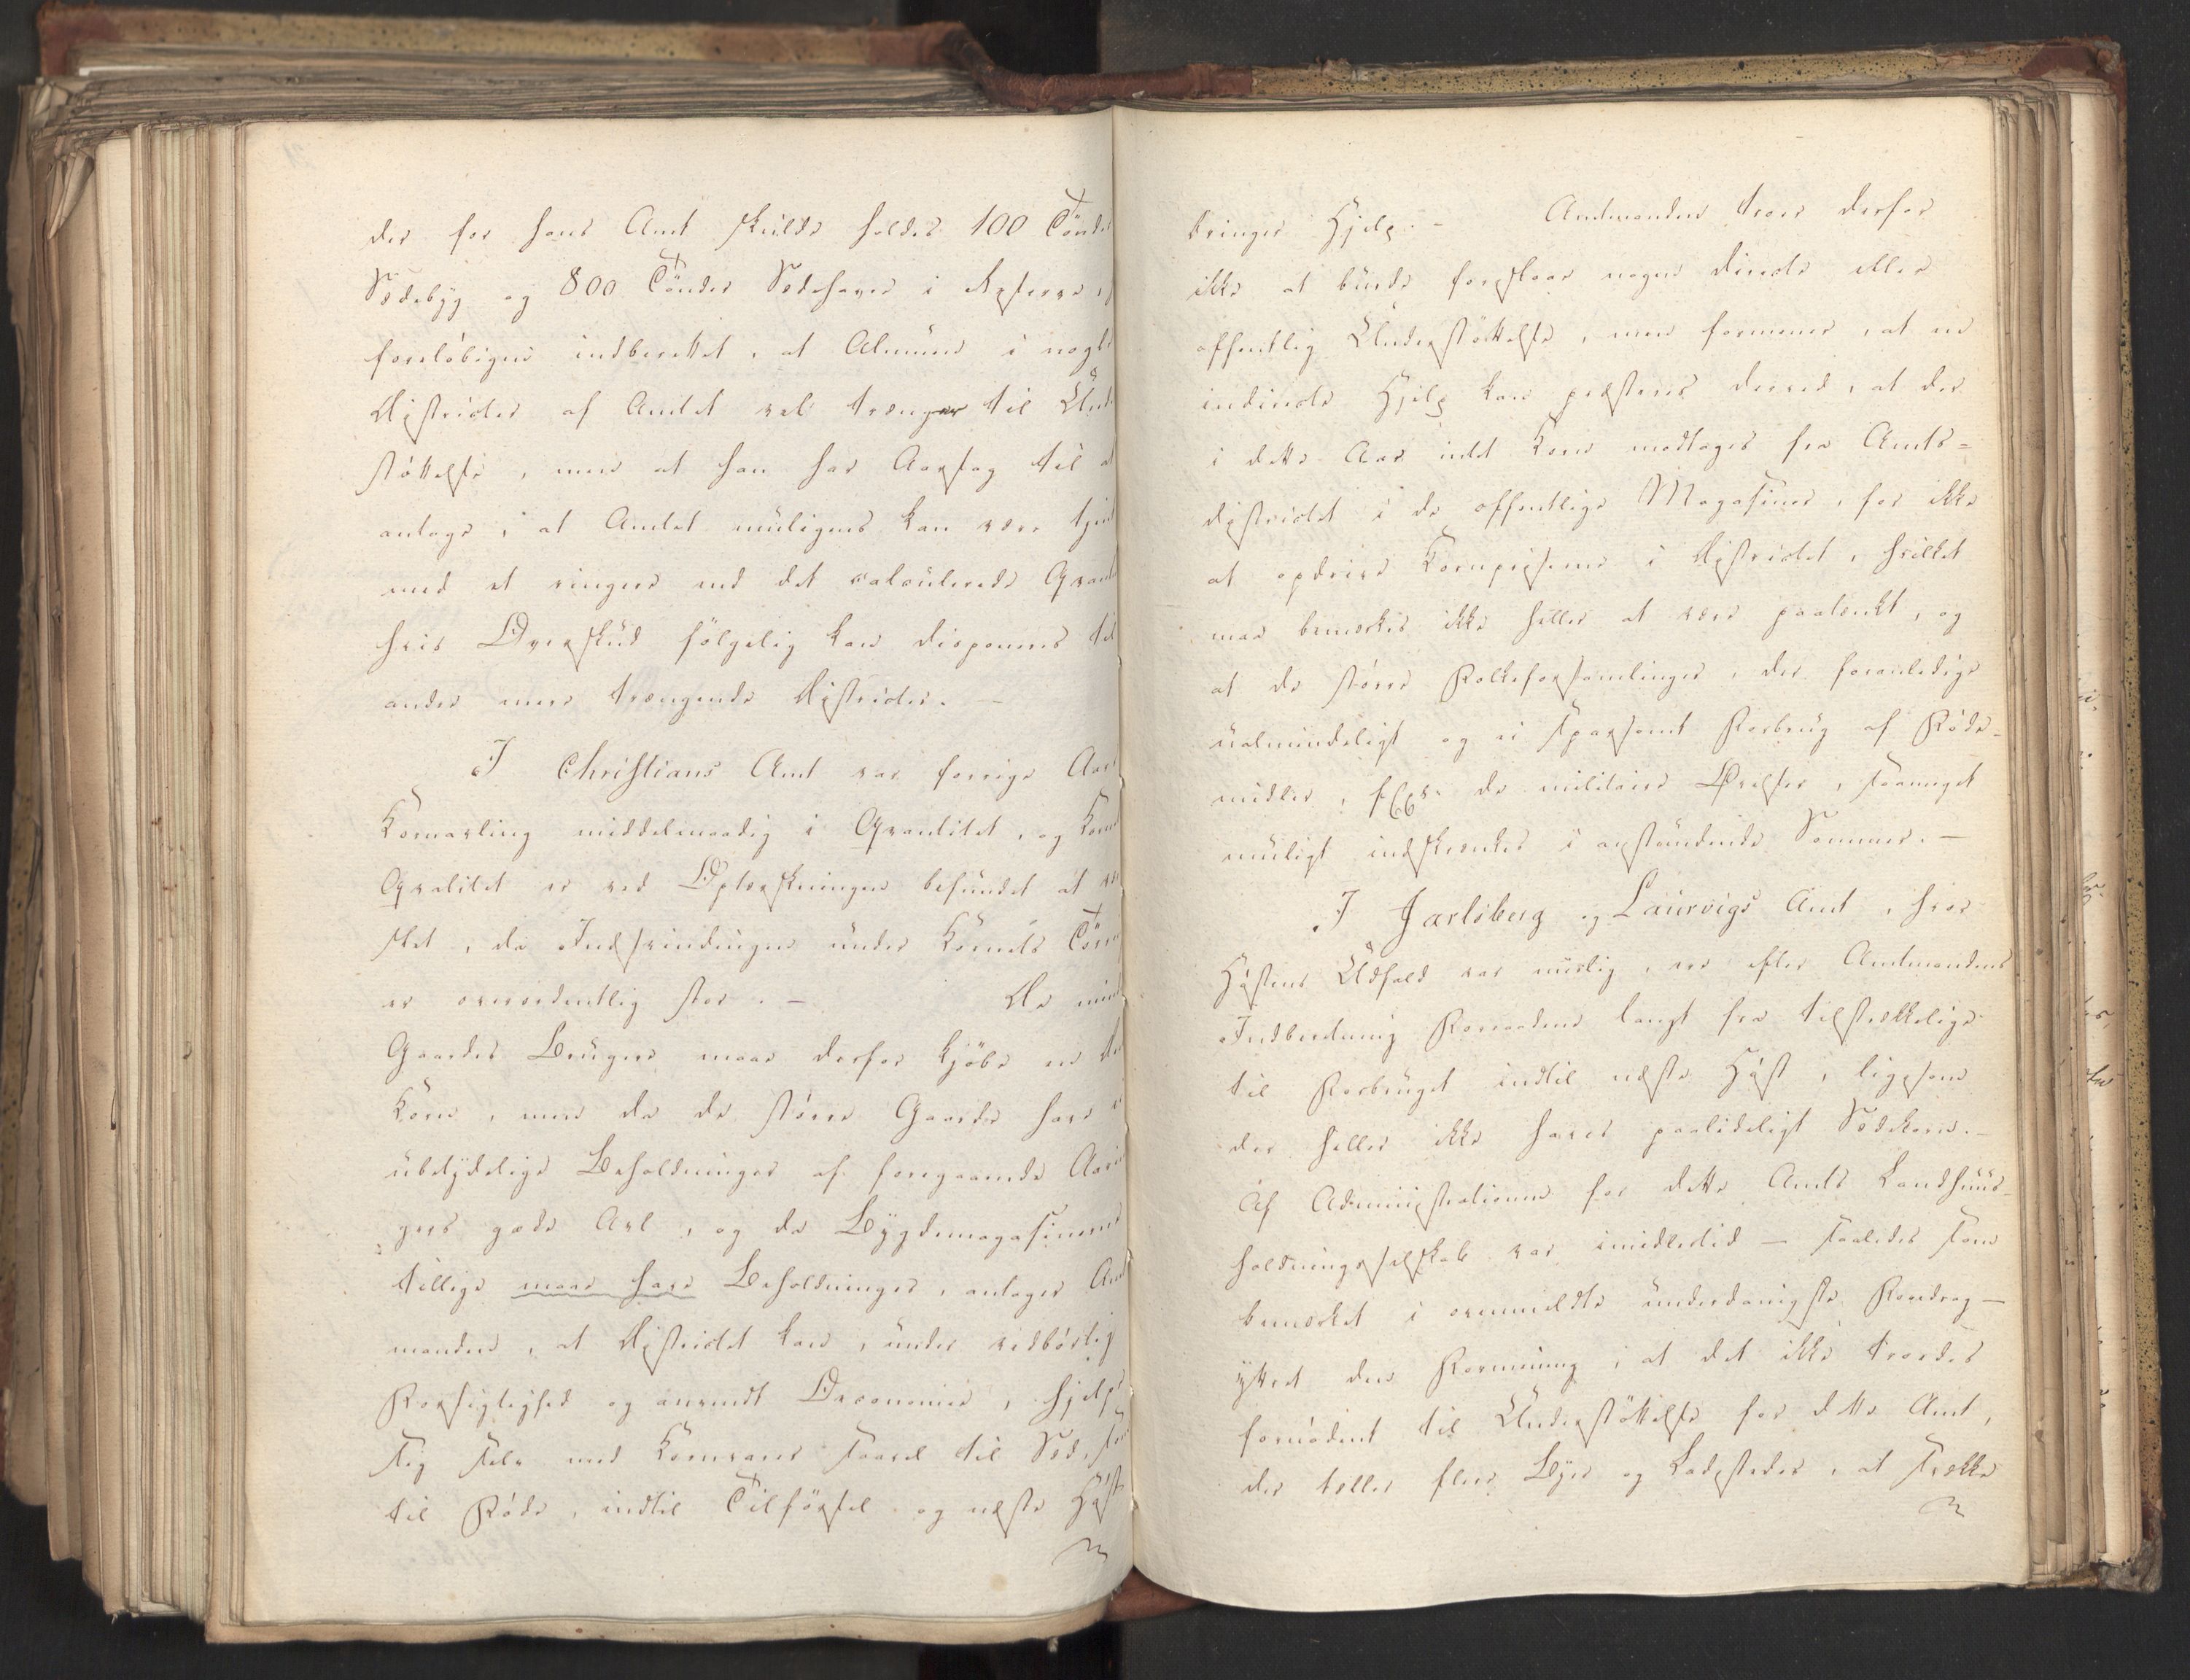 der for hans Amt skulde holdes 100 Tönder
Sædebyg og 800 Tönder Sædehavre i Reserve,
foreløbigen indberettet, at Almuen i nogle
Districter af Amtet vel trænger til Under
støttelse, men at han har Aarsag til at
antage, at Amtet muligens kan være tjent
med et ringere end det calculerede Qvant
hvis Overskud følgelig kan disponeres til
andre mere trængende Districter. —
I Christians Amt var forrige Aars
Kornavling middelmaadig i Qvantitet, og Kornets
Qvalitet er ved Optærskningen befundet at være
slet, da Indsvindingen under Kornets Törring
er overordentlig stor. — De mindre
Gaardes Brugere maae derfor kjöbe en Deel
Korn, men da de større Gaarde have ei
ubetydelige Beholdninger af foregaaende Aarin-
gers gode Avl, og da Bygdemagasinerne
tillige maae have Beholdninger, antager Amt
manden, at Districtet kan, under vedbørlig
Forsigtighed og anvendt Oeconomie, hjelpe
sig selv med Kornvarer saavel til Sæd, som
til Føde, indtil Tilførsel og næste Høst
bringer Hjelp. — Amtmanden troer derfor
ikke at burde foreslaae nogen directe eller
offentlig Understøttelse, men formener, at en
indirecte Hjelp kan præsteres derved, at der
i dette Aar intet Korn modtages fra Amts-
districtet i de offentlige Magasiner, for ikke
at opdrive Kornpriserne i Districtet, hvilket
maa bemærkes ikke heller at være paatænkt, og
at de større Folkeforsamlinger, der foranledige
ualmindeligt og ei sparsomt Forbrug af Føde-
midler, f. Ex. de militaire Øvelser, saameget
muligt indskrænkes i anstundende Sommer. —
I Jarlsberg og Laurvigs Amt, hvor
Høstens Udfald var misligt, ere efter Amtmandens
Indberetning Forraadene langt fra tilstrækkelige
til Forbruget indtil næste Høst, ligesom
der heller ikke haves paalideligt Sædekorn. —
Af Administrationen for dette Amts Landhuus-
holdningsselskab var imidlertid — saaledes som
bemærket i ovenmeldte underdanigste Foredrag —
yttret den Formening, at det ikke troedes
fornødent til Understøttelse for dette Amt,
der tæller flere Byer og Ladesteder, at trække